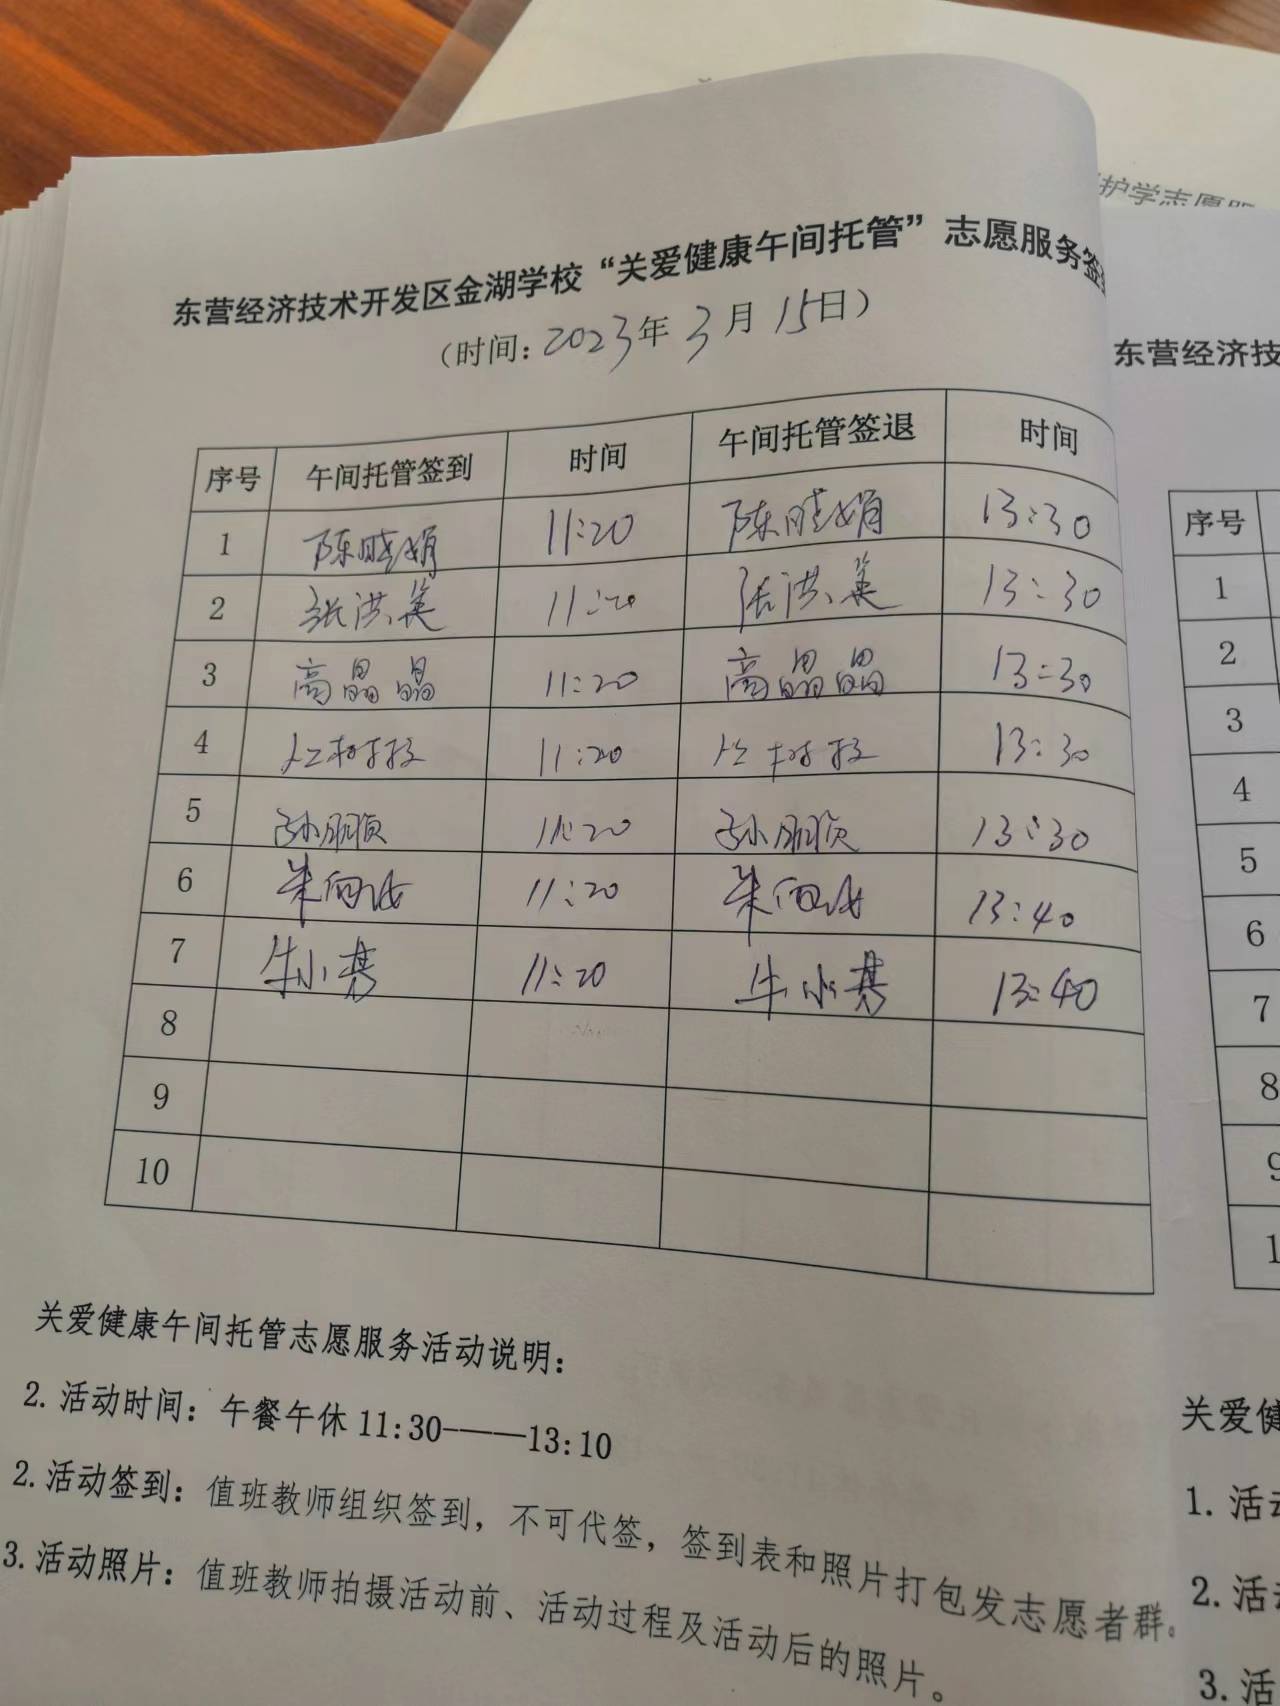 护学志愿服
东营经济技术开发区金湖学校“关爱健康午间托管”志愿服务签
(时间: 2023年 3月 15日)
序号 午间托管签到 时间 午间托管签退 时间
1 陈晓娟 11:20 陈晓娟 13:30
2 张洪英 11:20 张洪英 13:30
3 高晶晶 11:20 高晶晶 13:30
4 11:20 13:30
5 11:20 13:30
6 11:20 13:40
7 牛小 11:20 牛小 13:40
8
9
10
关爱健康午间托管志愿服务活动说明:
2. 活动时间: 午餐午休 11:30-——13:10
2. 活动签到: 值班教师组织签到, 不可代签, 签到表和照片打包发志愿者群。
3. 活动照片: 值班教师拍摄活动前、活动过程及活动后的照片。
东营经济技
序号
1
2
3
4
5
6
7
8
9
1
关爱健
1. 活动
2. 活动
3. 活